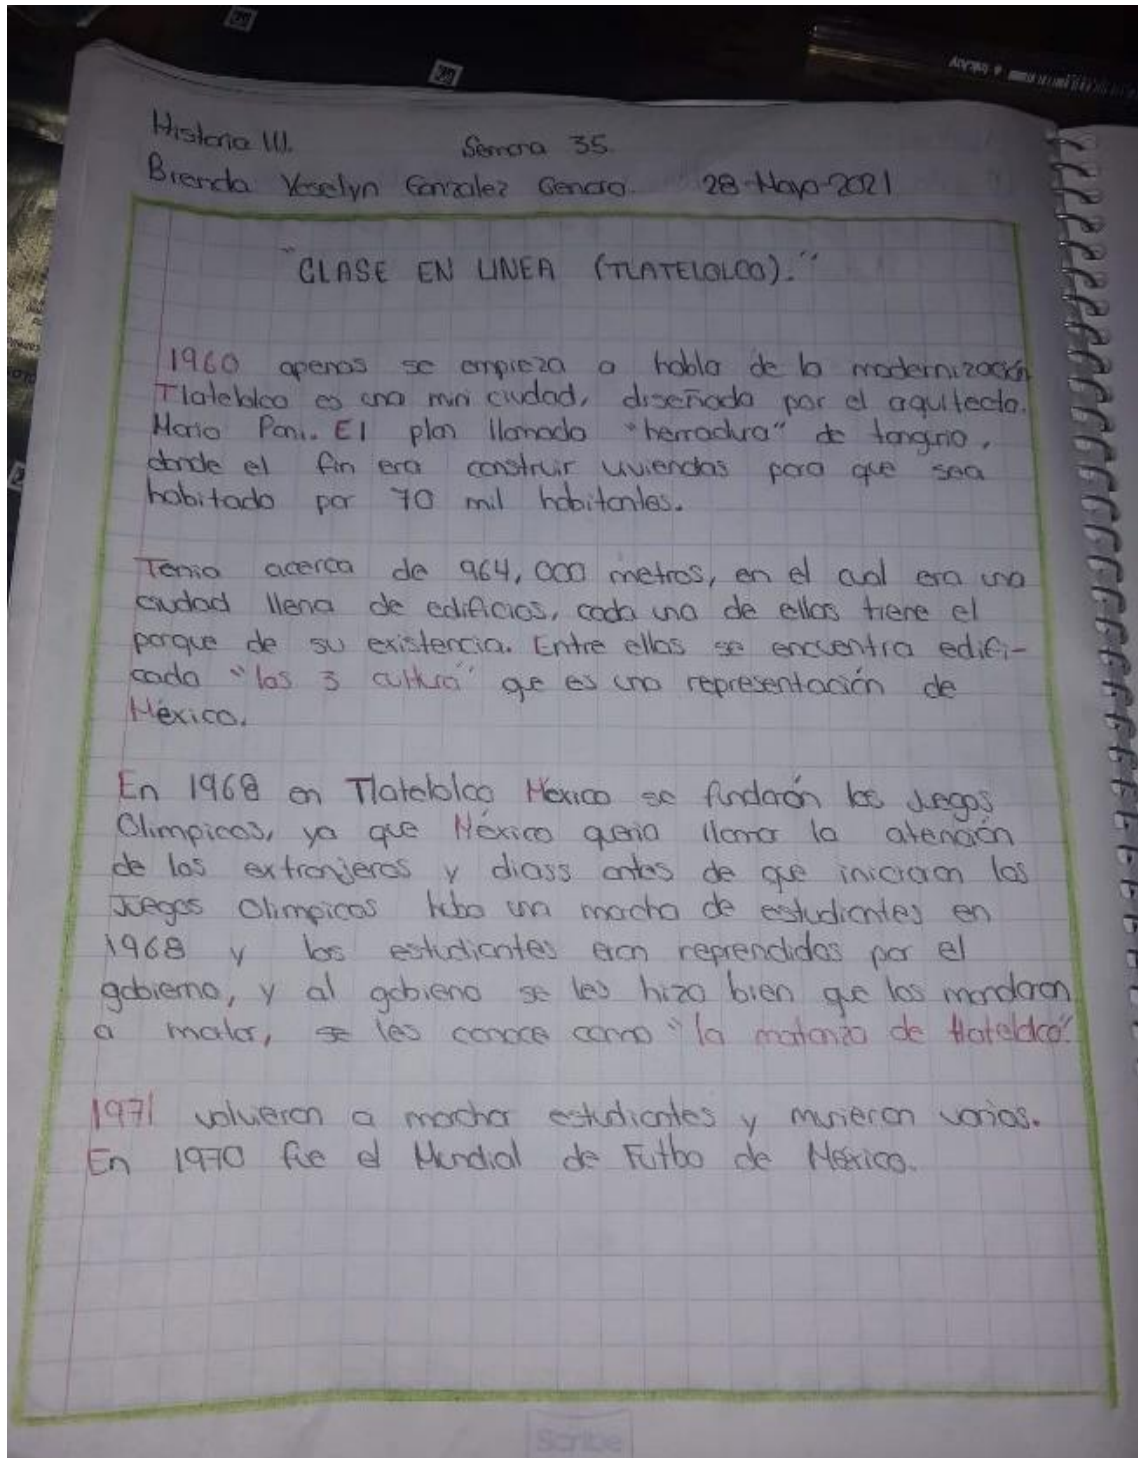 Historia III. Semana 35.
Brenda Yoselyn Gonzalez Genaro. 28-Mayo-2021
"CLASE EN LINEA (TLATELOLCO)."
1960 apenas se empieza a habla de la modernización
Tlatelolco es una mini ciudad, diseñada por el aquitecto.
Mario Pani. El plan llamado "herradura" de tongurio,
donde el fin era construir viviendas para que sea
habitado por 70 mil habitantes.
Tenia acerca de 964,000 metros, en el cual era una
ciudad llena de edificios, cada uno de ellos tiene el
porque de su existencia. Entre ellos se encuentra edifi-
cado "las 3 cultura" que es una representación de
México.
En 1968 en Tlatelolco México se fundarón los Juegos
Olimpicos, ya que México queria llamar la atención
de los extranjeros y diass antes de que iniciaran los
Juegos Olimpicos hubo una marcha de estudiantes en
1968 y los estudiantes eran reprendidos por el
gobierno, y al gobieno se les hizo bien que los mandaron
a matar, se les conoce como "la matanza de tlatelolco".
1971 volvieron a marchar estudiantes y murieron varios.
En 1970 fue el Mundial de Futbo de México.
Scribe